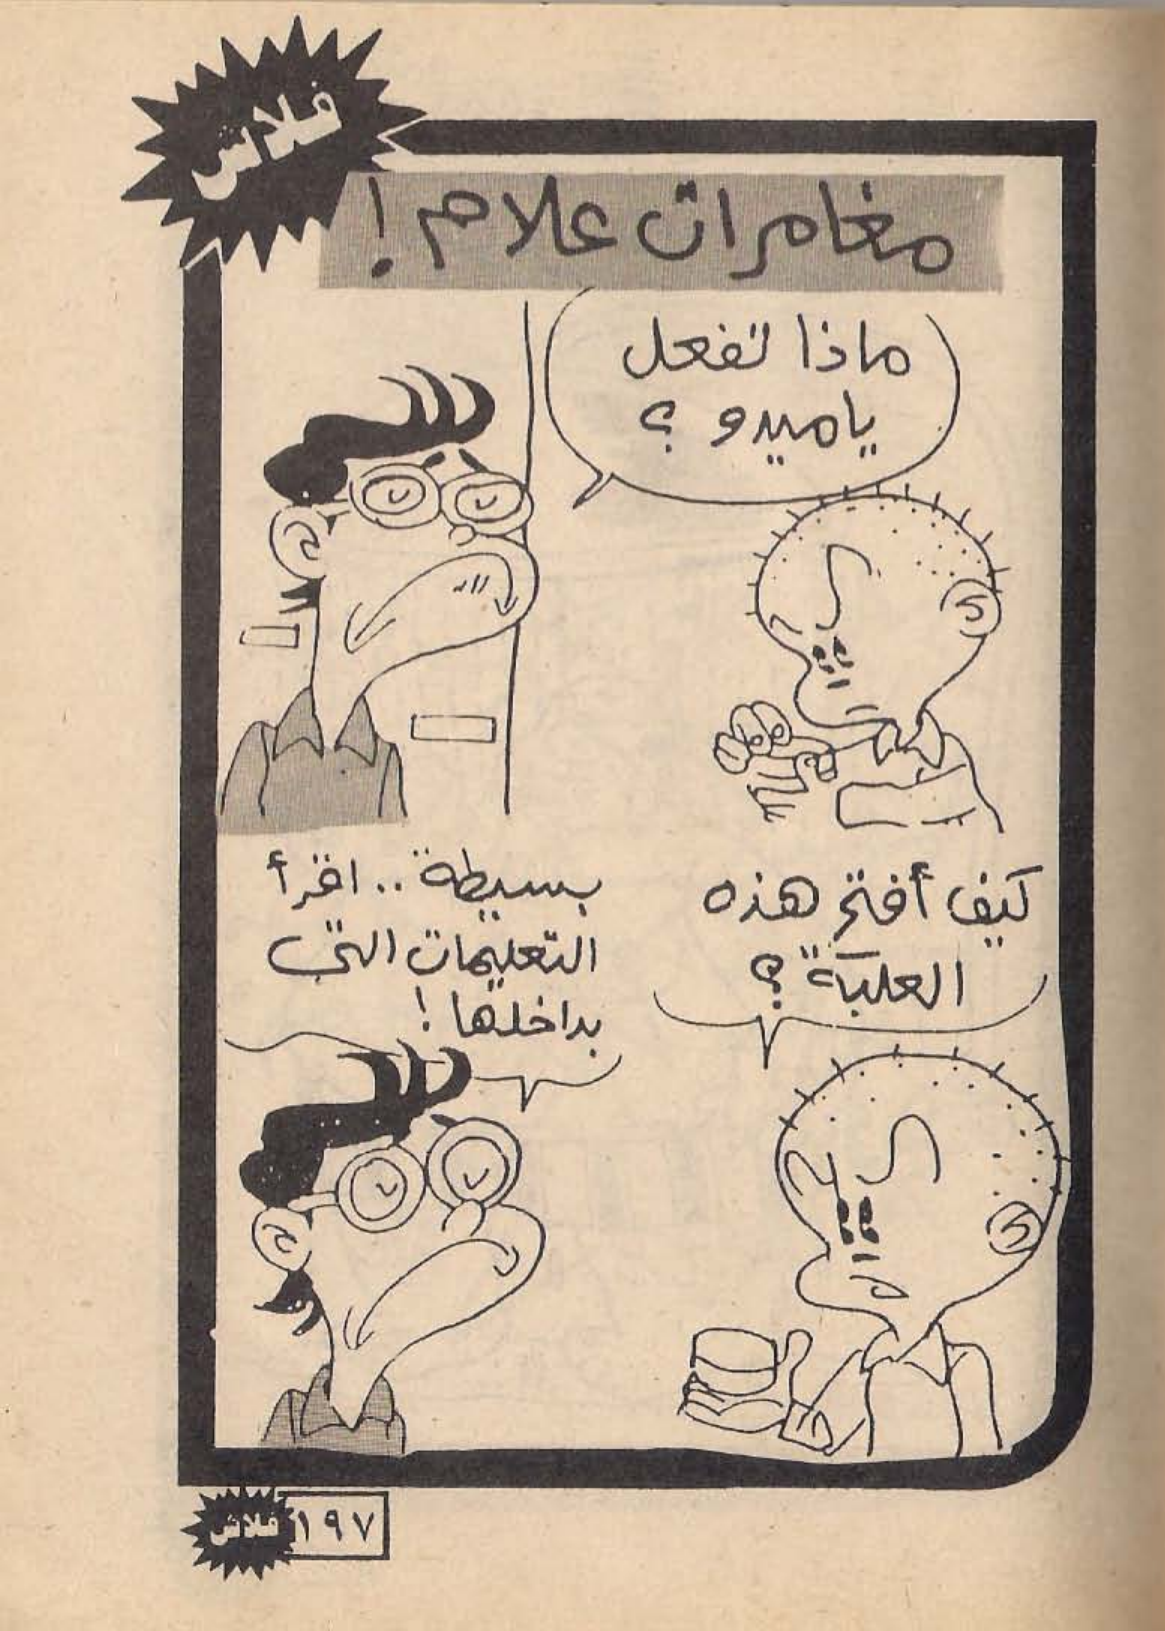 فلاش
مغامرات علام !
ماذا تفعل
ياميدو ؟
كيف أفتح هذه
العلبة ؟
بسيطة .. اقرأ
التعليمات التى
بداخلها !
فلاش ١٩٧